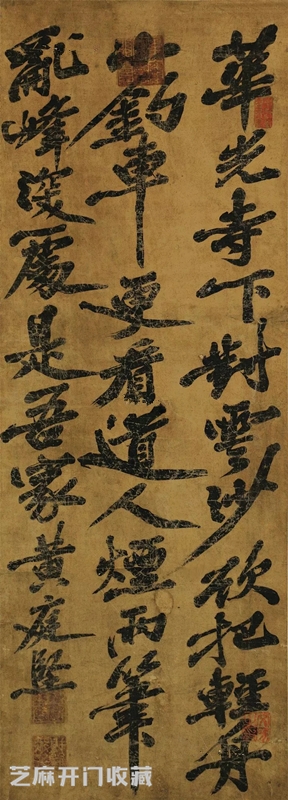 華光寺下對雲沙欲把輕舟
小釣車更看道人煙雨筆
亂峰深處是吾家黃庭堅
芝麻开门收藏